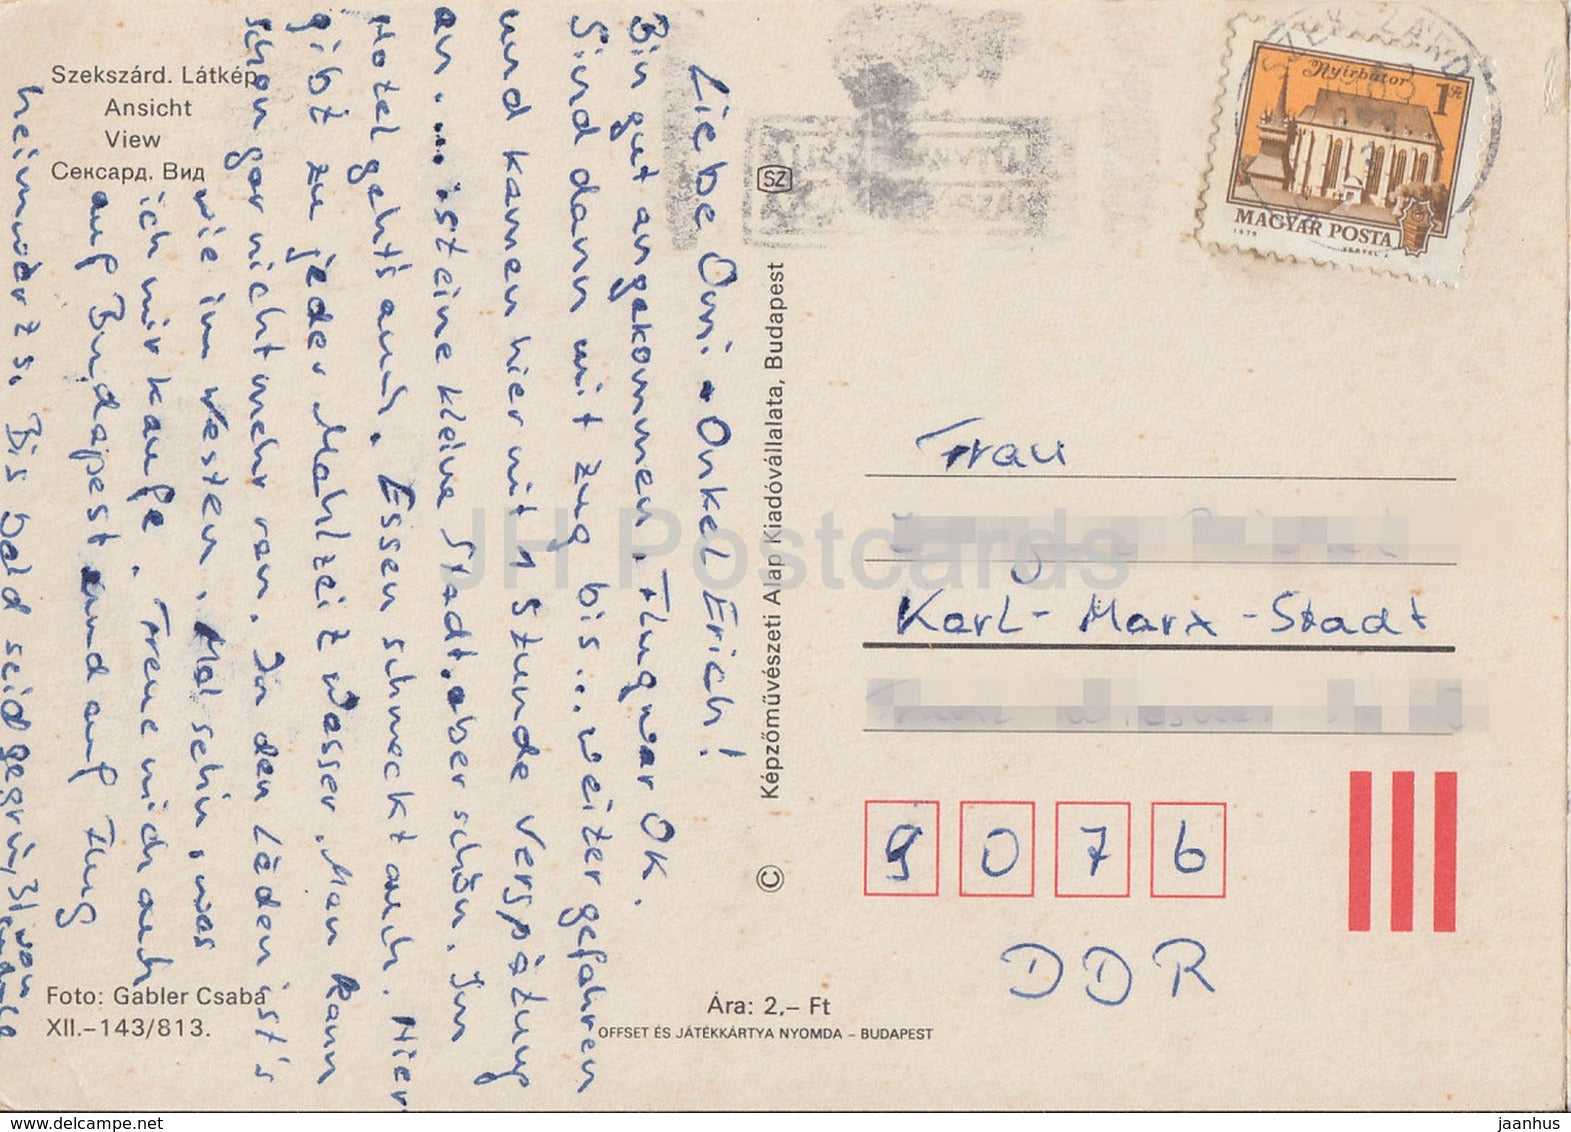 Szekszárd. Látkép
Ansicht
View
Сексард. Вид
Liebe Omi + Onkel Erich!
Bin gut angekommen. Flug war OK.
Sind dann mit Zug bis... weitergefahren
und kamen hier mit 1 Stunde Verspätung
an. ... ist eine kleine Stadt, aber schön. Im
Hotel gehts auch. Essen schmeckt auch. Hier
gibt zu jeder Mahlzeit Wasser. Man kann
schon gar nicht mehr ran. In den Läden ist's
wie im Westen. Mal sehn, was
ich mir kaufe. Freue mich auch
auf Budapest und auf Flug
heimwärts. Bis bald seid gegrüßt von
Foto: Gabler Csaba
XII.–143/813.
Képzőművészeti Alap Kiadóvállalata, Budapest
©
SZ
Ára: 2,– Ft
OFFSET ÉS JÁTÉKKÁRTYA NYOMDA – BUDAPEST
Nyírbátor
1 Ft
MAGYAR POSTA
1979
Frau
Karl-Marx-Stadt
9076
DDR
JH Postcards
www.delcampe.net
jaanhus